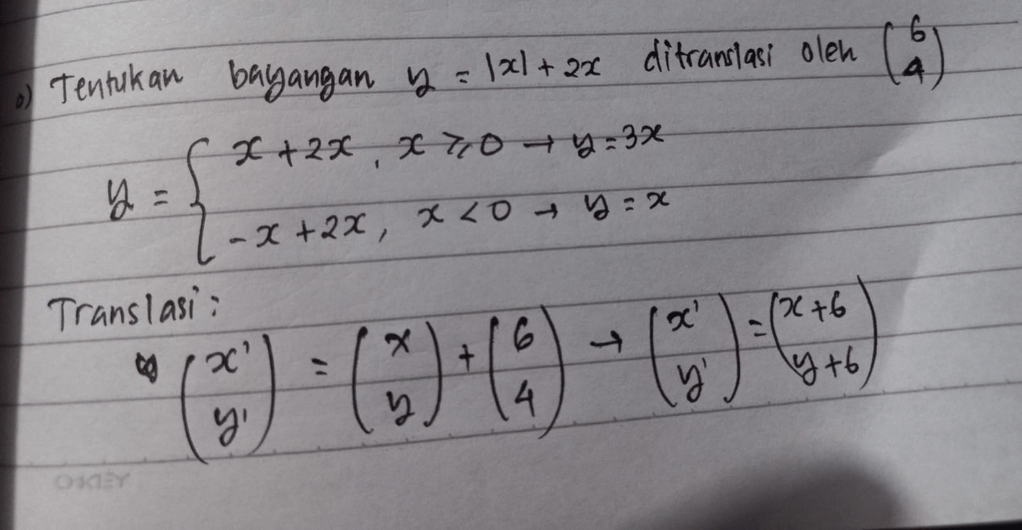 Tentukan bayangan y = |x| + 2x ditranslasi oleh (6 4)
y = { x + 2x , x ≥ 0 → y = 3x
-x + 2x , x < 0 → y = x
Translasi :
(x' y') = (x y) + (6 4) → (x' y') = (x+6 y+6)